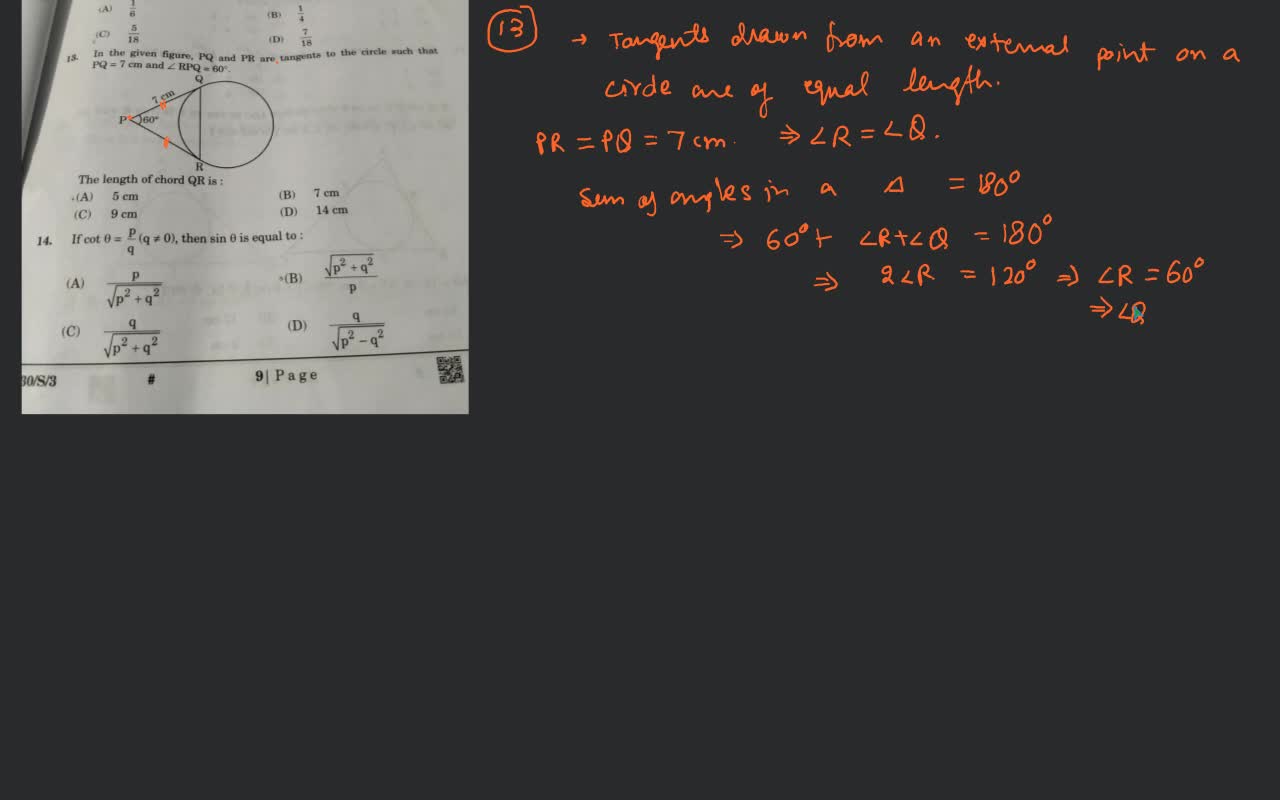 (A) 1/6 (B) 1/4
(C) 5/18 (D) 7/18
13. In the given figure, PQ and PR are tangents to the circle such that
PQ = 7 cm and ∠ RPQ = 60°.
Q
7 cm
P 60°
R
The length of chord QR is :
(A) 5 cm (B) 7 cm
(C) 9 cm (D) 14 cm
14. If cot θ = p/q (q ≠ 0), then sin θ is equal to :
(A) p/√(p² + q²) (B) √(p² + q²)/p
(C) q/√(p² + q²) (D) q/√(p² – q²)
30/S/3 # 9 | Page
13
→ Tangents drawn from an external point on a
circle are of equal length.
PR = PQ = 7 cm. ⇒ ∠R = ∠Q.
Sum of angles in a Δ = 180°
⇒ 60° + ∠R + ∠Q = 180°
⇒ 2∠R = 120° ⇒ ∠R = 60°
⇒ ∠Q